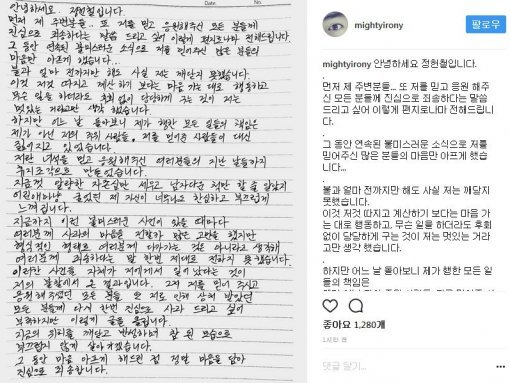 안녕하세요. 정현철입니다.
먼저 제 주변분들.. 또 저를 믿고 응원해주신 모든 분들께
진심으로 죄송하다는 말씀 드리고 싶어 이렇게 편지로나마 전해드립니다.
그 동안 연속된 불미스러운 소식으로 저를 믿어주신 많은 분들의
마음만 아프게 했습니다...
불과 얼마 전까지만 해도 사실 저는 깨닫지 못했습니다.
이것 저것 따지고 계산하기 보다는 마음 가는 대로 행동하고
무슨 일을 하더라도 후회 없이 당당하게 구는 것이 저는
멋있는 거라고만 생각 했습니다.
하지만 어느 날 돌아보니 제가 행한 모든 일들의 책임은
제가 아닌 저의 주위 사람들, 저를 믿어준 사람들이 대신
짊어지고 있었습니다.
지난 날
믿고 응원해주신 여러분들의 지난 날들까지
만들었습니다.
지금껏 알량한 자존심만 세우고 남자다운 척만 할 줄 알았지
어린애마냥 굴었던 제 자신이 너무나도 한심하고 부끄럽게
느껴집니다.
지금까지 이런 불미스러운 사건이 있을 때마다
여러분께 사과의 마음을 전할까 많은 고민을 했지만
형식적인 형태로 여러분께 다가가는 것은 아니라고 생각해
여러분께 죄송하다는 말 한번 제대로 전하지 못 했습니다.
이러한 사건들 자체가 저에게서 일어났다는 것이
저의 불찰에서 온 결과입니다. 그저 저를 믿어 주시고
응원 해주셨던 모든 분들 또 저로 인해 상처 받았던
모든 분들께 다시 한번 진심으로 사과 드리고 싶어
부족하지만 이렇게 글을 올립니다.
지금의 위치를 깨닫고 반성하며 참 된 모습으로
부끄럽지 않게 살아가겠습니다.
그 동안 마음 아프게 해드린 점 정말 마음을 담아
진심으로 죄송합니다.
mightyirony
팔로우
mightyirony 안녕하세요 정현철입니다.
먼저 제 주변분들... 또 저를 믿고 응원 해주
신 모든 분들께 진심으로 죄송하다는 말씀
드리고 싶어 이렇게 편지로나마 전해드립
니다.
그 동안 연속된 불미스러운 소식으로 저를
믿어주신 많은 분들의 마음만 아프게 했습
니다...
불과 얼마 전까지만 해도 사실 저는 깨닫지
못했습니다.
이것 저것 따지고 계산하기 보다는 마음 가
는 대로 행동하고, 무슨 일을 하더라도 후회
없이 당당하게 구는 것이 저는 멋있는 거라
고만 생각 했습니다.
하지만 어느 날 돌아보니 제가 행한 모든 일
들의 책임은
좋아요 1,280개
1시간 전
댓글 달기...